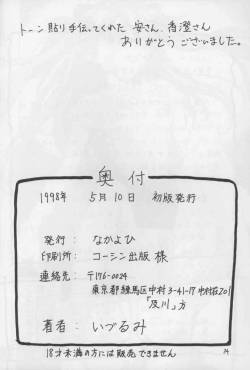 トーン貼り手伝ってくれた 安さん、香澄さん
ありがとう ございました。
奥付
1998年 5月10日 初版発行
発行： なかよひ
印刷所： コーシン出版 様
連絡先： 〒176-0024
東京都練馬区中村3-41-17 中村荘201
「及川」方
著者： いづるみ
18才未満の方には販売できません